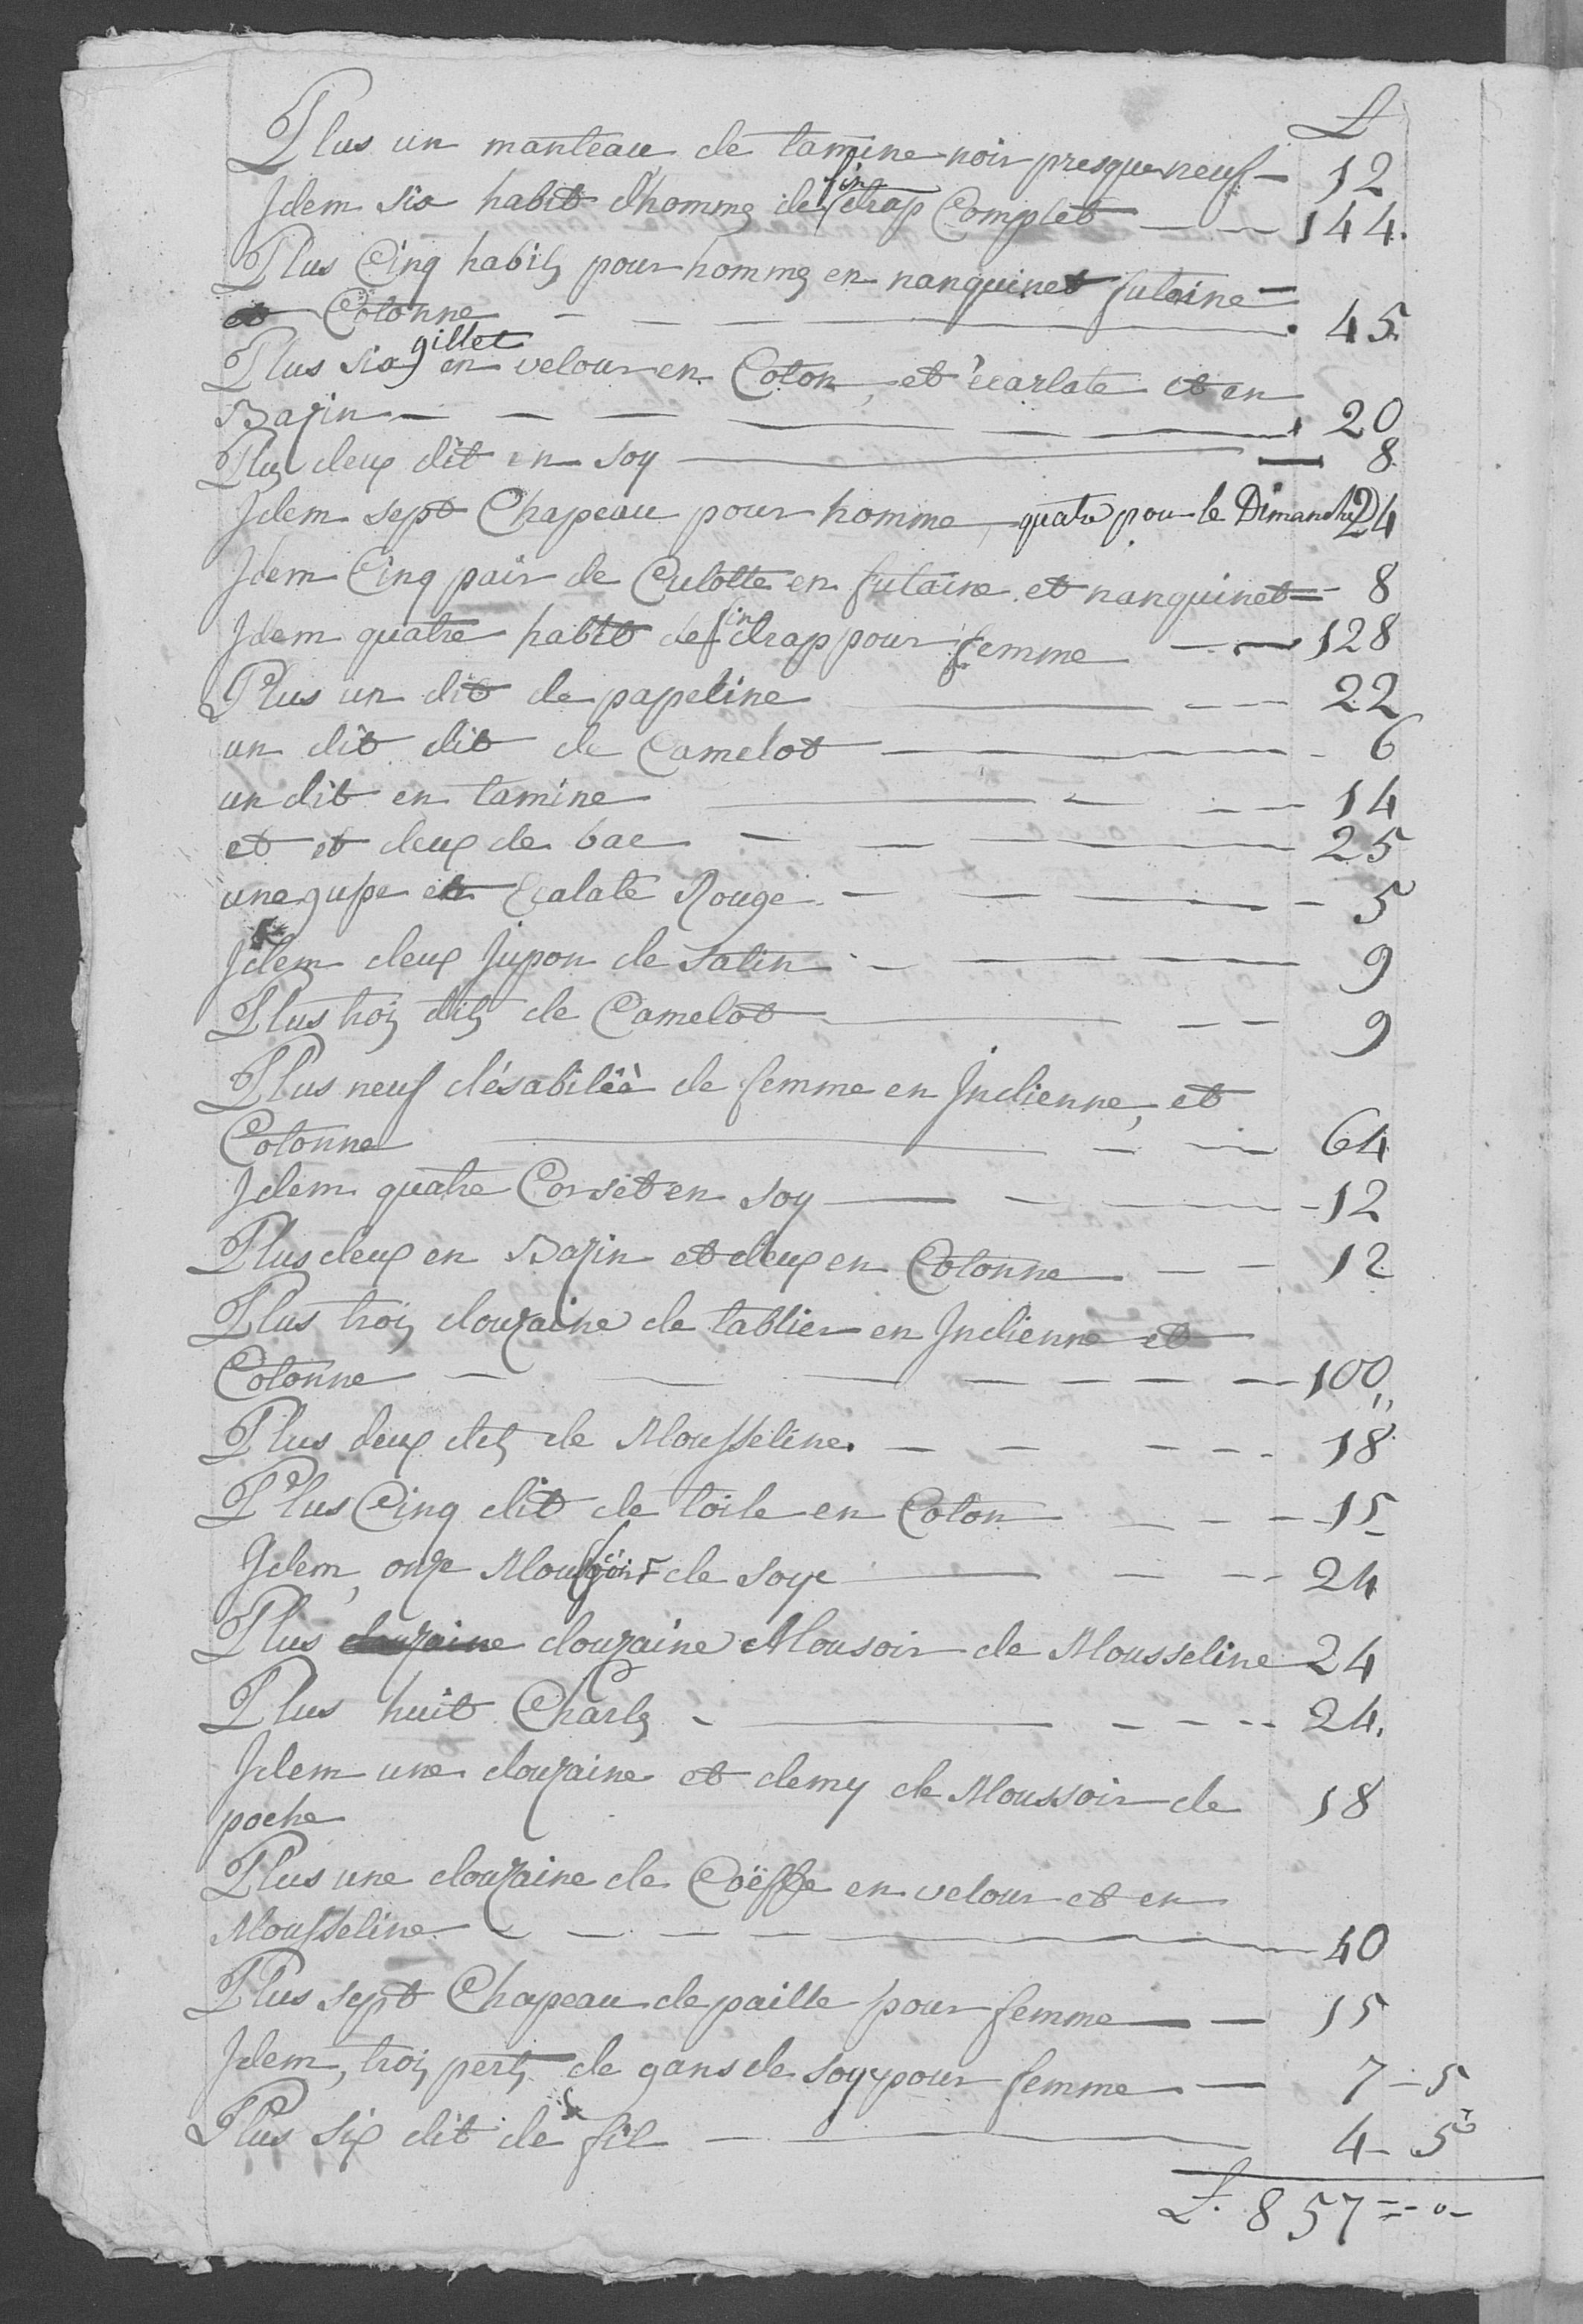 £
Plus un manteau de tamine noir presque neuf — 12
Jdem six habit d'homme de fin drap Complet — — 144.
Plus Cinq habits pour homme en nanquinet futaine
et Cotonne — — — 45.
Plus six gillet en velour en Coton, et écarlate et en
Bazin — — — 20
Plus deux dit en soy — 8.
Jdem sept Chapeau pour homme, quatre pour le Dimanche 24
Jdem Cinq pair de Culotte en futaine et nanquinet = 8
Jdem quatre habit de fin drap pour femme — — 128
Plus un dit de papeline — — — 22
un dit dit de Camelot — — 6
un dit en tamine — — — 14
et et deux de bae — — — 25
une gupe Ecalate Rouge — — — 5
Jdem deux Jupon de Satin — — — 9
Plus trois dits de Camelot — — — 9
Plus neuf désabiléè de femme en Jndienne, et
Cotonne — — — 64
Jdem quatre Corset en soy — — — 12
Plus deux en Bazin et deux en Cotonne — — 12
Plus trois douzaine de tablier en Jndienne et
Cotonne — — — — 100,,
Plus deux dits de Mousseline. — — — 18
Plus Cinq dit de toile en Coton — — — 15
Jdem, onze de soye — — — 24
Plus douzaine Mousoir de Mousseline 24
Plus huit Charls — — — 24.
Jdem une douzaine et demy de Moussoir de 18
poche
Plus une douzaine de Coëffe en velour et en
Mousseline — — — 40
Plus sept Chapeau de paille pour femme — — 15
Jdem, trois perts de gans de soy pour femme — 7 – 5
Plus six dit de fil — 4 – 5
£. 857 = - 0 -